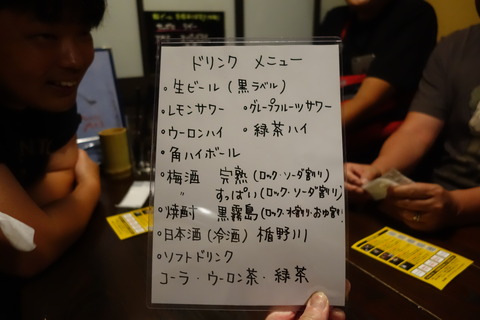 ドリンク メニュー
・生ビール(黒ラベル)
・レモンサワー ・グレープフルーツサワー
・ウーロンハイ ・緑茶ハイ
・角ハイボール
・梅酒 完熟(ロック・ソーダ割り)
〃 すっぱい(ロック・ソーダ割り)
・焼酎 黒霧島(ロック・水割り・お湯割り)
・日本酒(冷酒) 楯野川
・ソフトドリンク
コーラ・ウーロン茶・緑茶